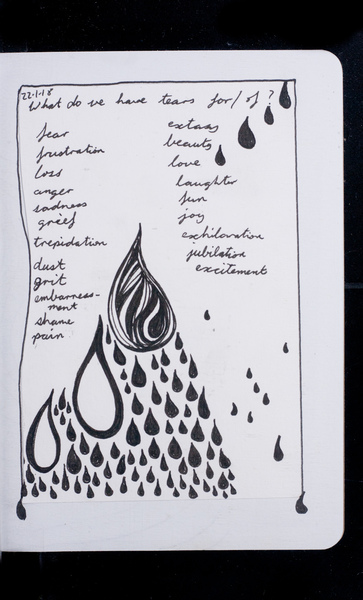 22-1-18
What do we have tears for/of?
fear
frustration
loss
anger
sadness
grief
trepidation
dust
grit
embarrass-
ment
shame
pain
extasy
beauty
love
laughter
fun
joy
exhiloration
jubilation
excitement